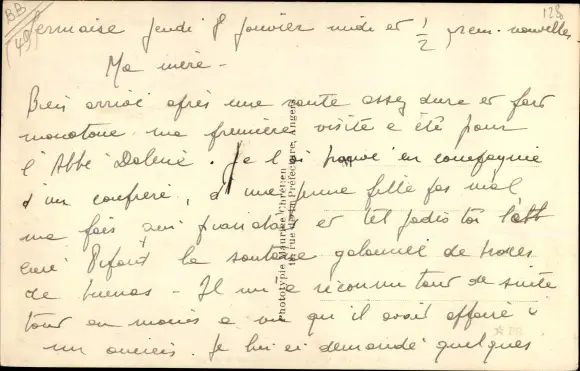 BB
(49)
1280
Jeudi 8 Janvier midi et 1/2 prem. nouvelles -
Ma mère -
Bien arrivé après une route assez dure et fort
monotone ma première visite a été pour
l'Abbé . Je l'ai trouvé en compagnie
d'un confrère, d'une jeune fille pas mal
ma fois et tel jadis toi
curé la soutane galonnée de
de - Il m'a reconnu tout de suite
tout au moins a vu qu'il avait affaire à
un ancien. Je lui ai demandé quelques
Phototypie Maurice Chrétien
rue de la Préfecture, Angers